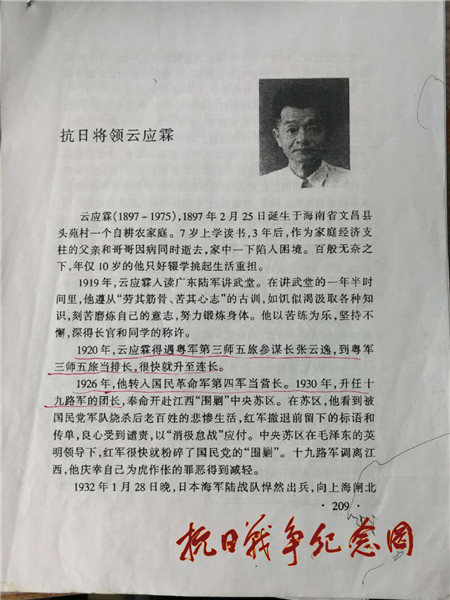 抗日将领云应霖
云应霖(1897-1975),1897年2月25日诞生于海南省文昌县
头苑村一个自耕农家庭。7岁上学读书,3年后,作为家庭经济支
柱的父亲和哥哥因病同时逝去,家中一下陷人困境。百般无奈之
下,年仅10岁的他只好辍学挑起生活重担。
1919年,云应霖人读广东陆军讲武堂。在讲武堂的一年半时
间里,他遵从“劳其筋骨、苦其心志”的古训,如饥似渴汲取各种知
识,刻苦磨炼自己的意志,努力锻炼身体。他以苦练为乐,坚持不
懈,深得长官和同学的称许。
1920年,云应霖得遇粤军第三师五旅参谋长张云逸,到粤军
三师五旅当排长,很快就升至连长。
1926年,他转入国民革命军第四军当营长。1930年,升任十
九路军的团长,奉命开赴江西“围剿”中央苏区。在苏区,他看到被
国民党军队烧杀后老百姓的悲惨生活,红军撤退前留下的标语和
传单,良心受到谴责,以“消极怠战”应付。中央苏区在毛泽东的英
明领导下,红军很快就粉碎了国民党的“围剿”。十九路军调离江
西,他庆幸自己为虎作伥的罪恶得到减轻。
1932年1月28日晚,日本海军陆战队悍然出兵,向上海闸北
·209·
抗日战争纪念网